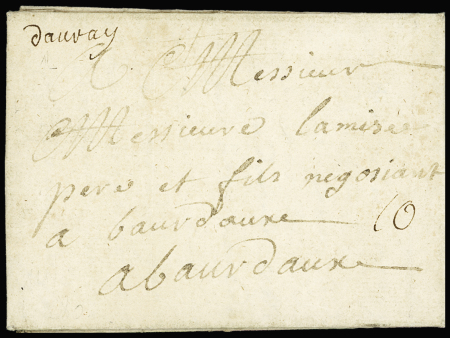 dauray
A Messieur
Messieure lamise
pere et fils negosiant
a baurdauxe 10
a baurdauxe